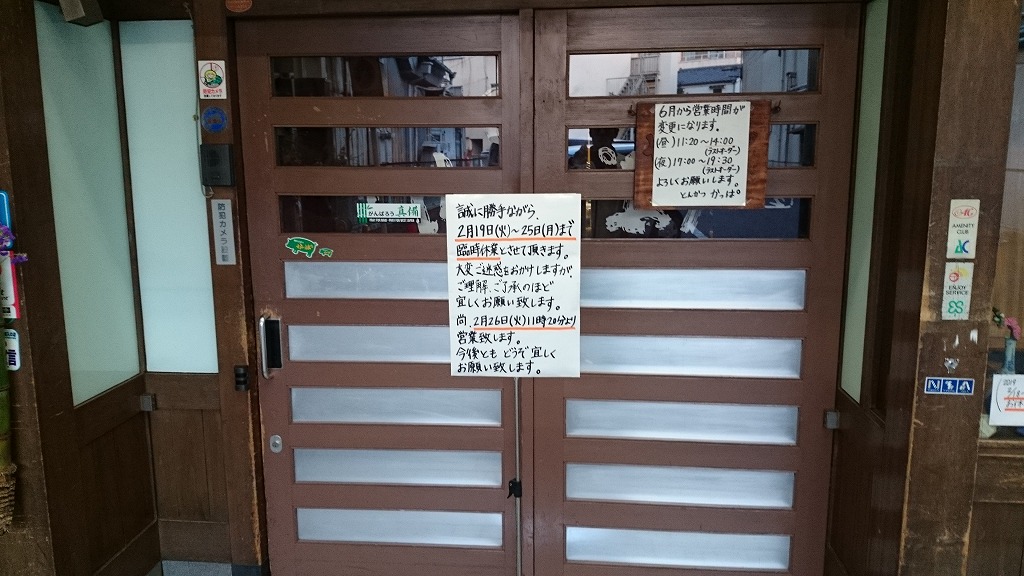 防犯カメラ
がんばろう真備
誠に勝手ながら、
2月19日(火)~25日(月)まで
臨時休業とさせて頂きます。
大変ご迷惑をおかけしますが、
ご理解、ご了承のほど
宜しくお願い致します。
尚、2月26日(火)11時20分より
営業致します。
今後とも どうぞ宜しく
お願い致します。
6月から営業時間が
変更になります。
(昼)11:20~14:00
(ラストオーダー)
(夜)17:00~19:30
(ラストオーダー)
よろしくお願いします。
とんかつ かっぱ
AMENITY
CLUB
ENJOY
SERVICE
2019